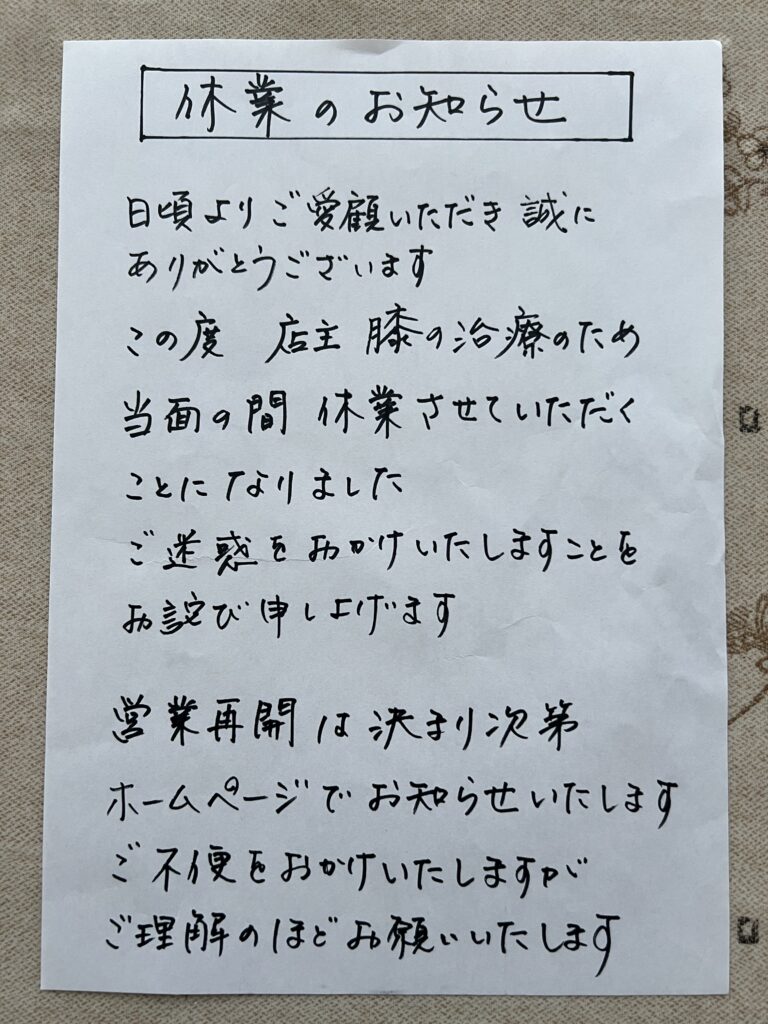 休業のお知らせ
日頃よりご愛顧いただき 誠に
ありがとうございます
この度 店主 膝の治療のため
当面の間 休業させていただく
ことになりました
ご迷惑をおかけいたしますことを
お詫び申し上げます
営業再開は決まり次第
ホームページでお知らせいたします
ご不便をおかけいたしますが
ご理解のほどお願いいたします